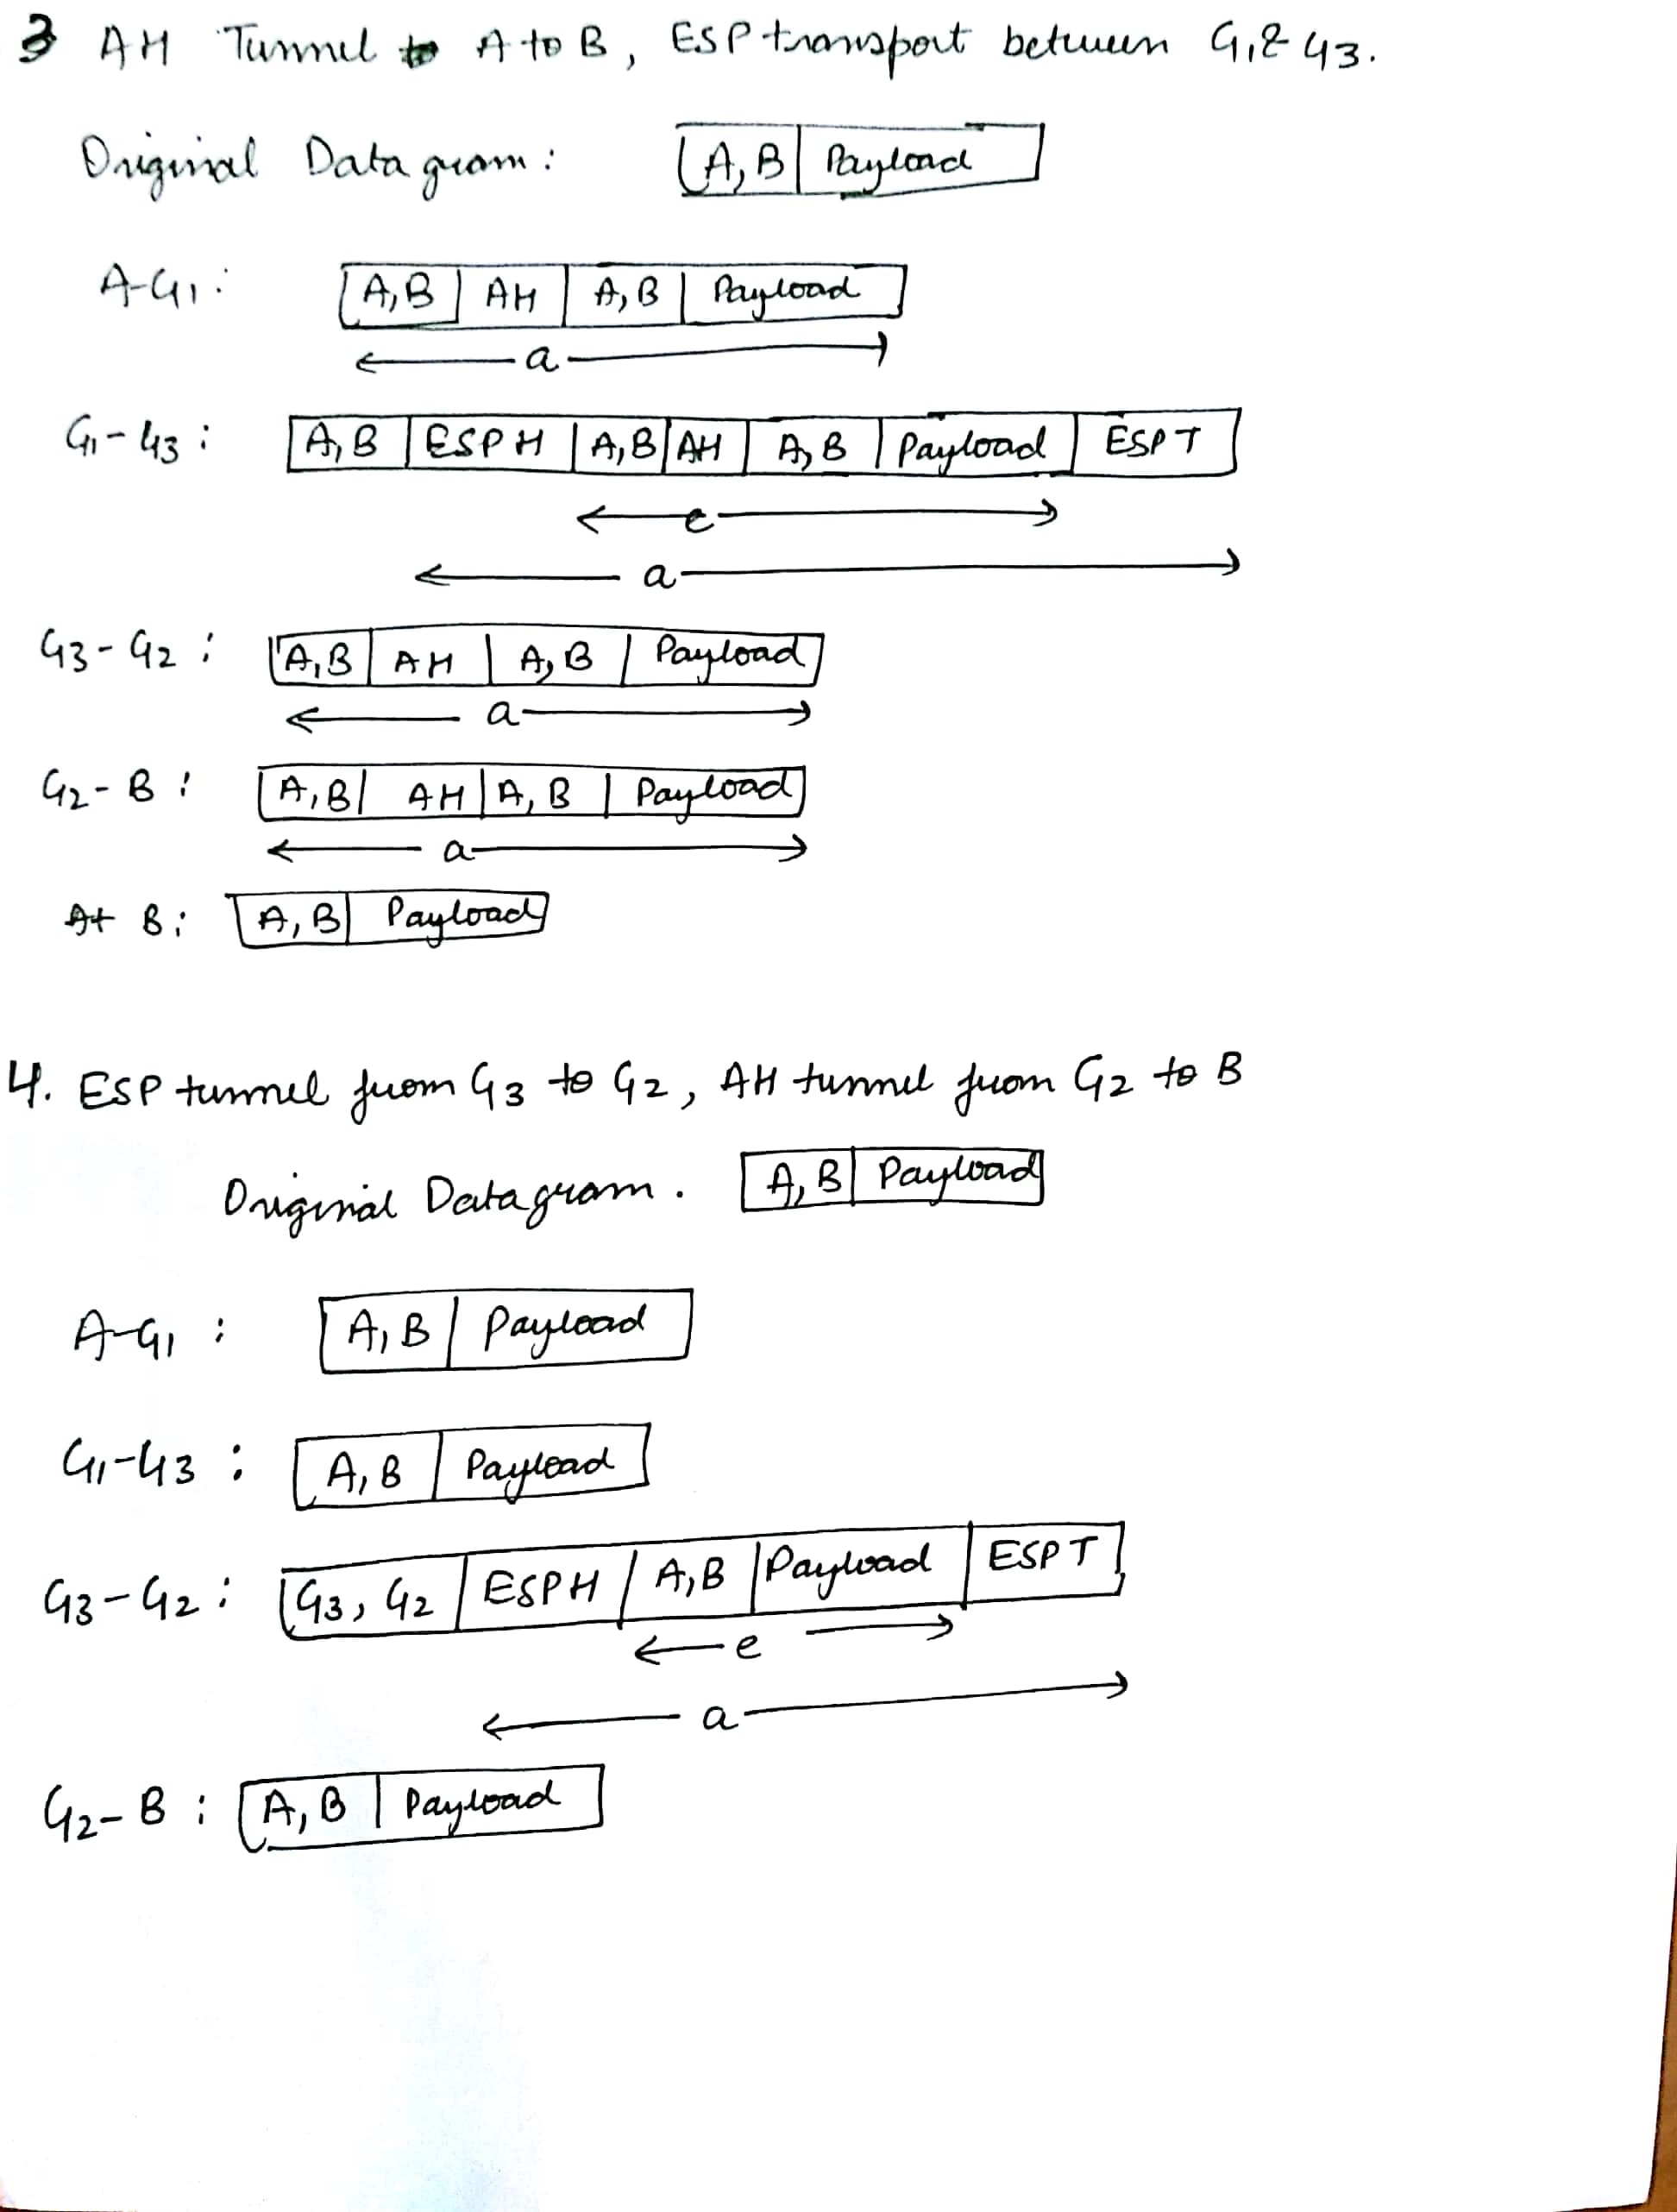 3 AH Tunnel to A to B, ESP transport between G1 & G3.
Original Datagram: A, B | Payload
A-G1: A, B | AH | A, B | Payload
a
G1-G3: A, B | ESP H | A, B | AH | A, B | Payload | ESP T
e
a
G3-G2: A, B | AH | A, B | Payload
a
G2-B: A, B | AH | A, B | Payload
a
At B: A, B | Payload
4. ESP tunnel from G3 to G2, AH tunnel from G2 to B
Original Datagram. A, B | Payload
A-G1: A, B | Payload
G1-G3: A, B | Payload
G3-G2: G3, G2 | ESPH | A, B | Payload | ESP T
e
a
G2-B: A, B | Payload